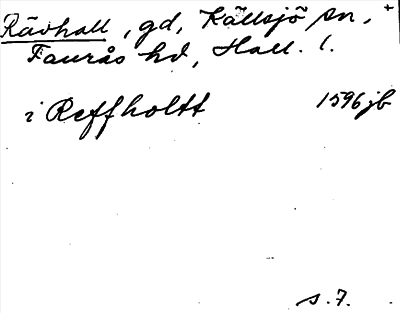 Rävhall, gd, Källsjö sn, +
Faurås hd, Hall. l.
i Reffholtt 1596 jb
s. 7.